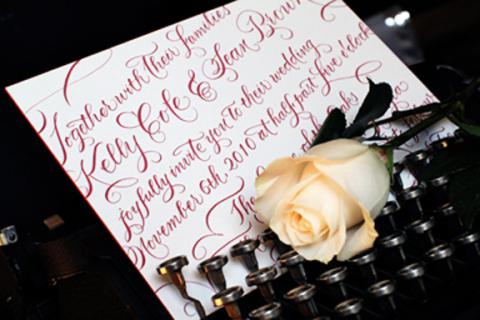 Together with their families
Kelly Cole & Sean Brown
joyfully invite you to their wedding
November 6th, 2010 at half past five o'clock
The Oaks